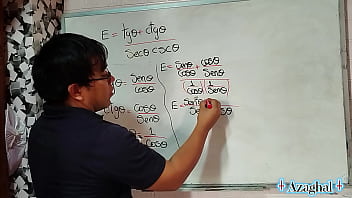 E = tgθ + ctgθ
Secθ cscθ
Senθ
Cosθ
ctgθ = Cosθ
Senθ
1
Cosθ
E = Senθ + cosθ
Cosθ Senθ
1 1
Cosθ Senθ
E =
Azaghal